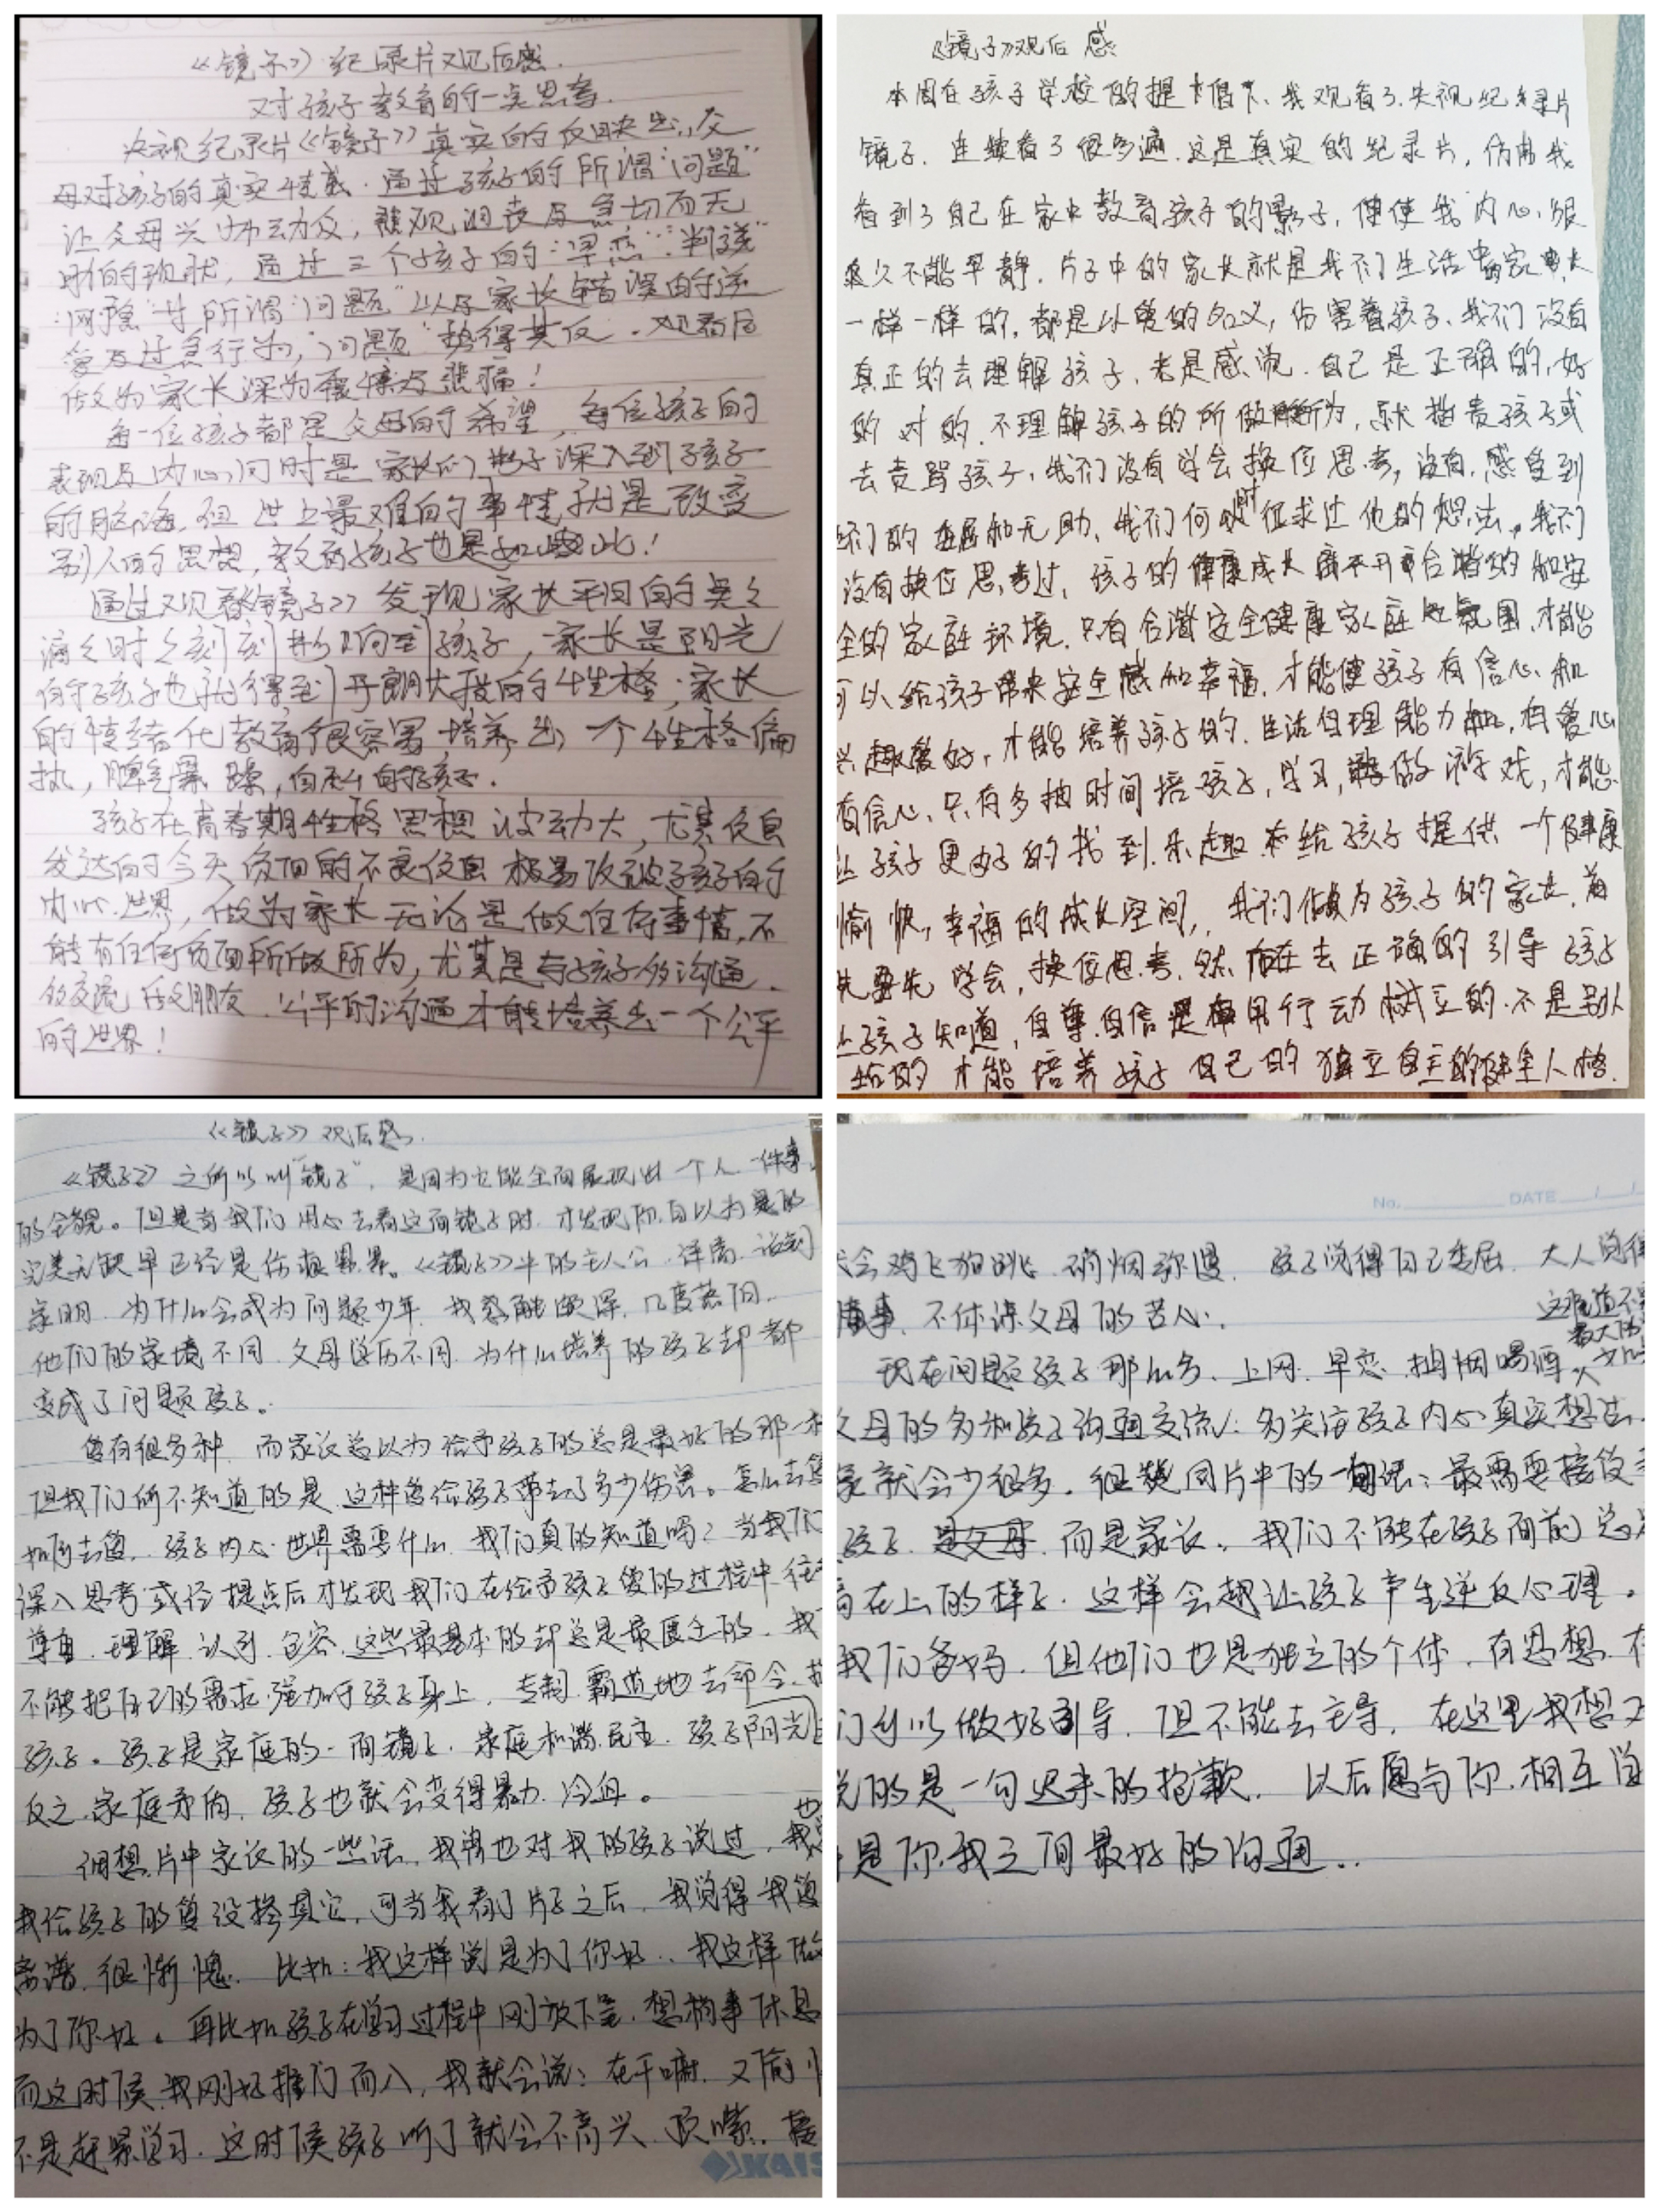 《镜子》纪录片观后感.
对孩子教育的一点思考.
央视纪录片《镜子》真实的反映出,父
母对孩子的真实情感.通过孩子的所谓"问题"
让父母兴师动众,悲观,沮丧及急切而无
助的现状,通过三个孩子的"早恋""判逆"
"网隐"等所谓"问题"以及家长错误的溺
爱及过急行为,"问题"势得其反.观看后
做为家长深为震憾与悲痛!
每一位孩子都是父母的希望,每位孩子的
表现及内心,同时是家长们
的脑海,但世上最难的事情就是改变
别人的思想,教育孩子也是如此!
通过观看《镜子》发现家长平日的点点
滴滴时时刻刻影响到孩子,家长是阳光
的孩子也就得到开朗大方的性格,家长
的情绪化教育很容易培养出一个性格偏
执,脾气暴躁,自私的孩子.
孩子在青春期性格思想波动大,尤其信息
发达的今天负面的不良信息极易改变孩子的
内心世界,做为家长无论是做任何事情,不
能有任何负面所做所为,尤其是与孩子多沟通.
多交流,做朋友.公平的沟通才能培养出一个公平
的世界!
《镜子》观后感
本周在孩子学校的提倡下、我观看了央视纪录片
镜子.连续看了很多遍.这是真实的纪录片,仿佛我
看到了自己在家中教育孩子的影子,使我内心很
久久不能平静.片子中的家长就是我们生活中的家长
一样一样的,都是以爱的名义,伤害着孩子、我们没有
真正的去理解孩子,老是感觉.自己是正确的,好
的对的.不理解孩子的所做所为,就指责孩子或
去责骂孩子,我们没有学会换位思考,没有感受到
他们的委屈和无助、我们何时征求过他的想法,我们
没有换位思考过,孩子的健康成长离不开和谐的和安
全的家庭环境.只有合谐安全健康家庭氛围,才能
可以给孩子带来安全感和幸福,才能使孩子有信心和
兴趣爱好,才能培养孩子的.生活自理能力和,有爱心
有信心、只有多抽时间培孩子,学习,做游戏,才能
让孩子更好的找到乐趣和给孩子提供一个健康
愉快,幸福的成长空间,我们做为孩子的家长,首
先要先学会,换位思考,然后在去正确的引导孩子
让孩子知道,自尊自信是用行动树立的.不是别人
给的才能培养孩子自己的独立自主的健全人格.
《镜子》观后感.
《镜子》之所以叫"镜子",是因为它能全面展现出一个人一件事
的全貌。但是当我们用心去看这面镜子时,才发现你自以为是的
完美无缺早已经是伤痕累累。《镜子》中的主人公.泽清、
家明,为什么会成为问题少年,我感触颇深,几度落泪.
他们的家境不同,父母学历不同,为什么培养的孩子却都
变成了问题孩子。
爱有很多种,而家长总以为给予孩子的总是最好的那一种
但我们所不知道的是,这种爱给孩子带去了多少伤害。怎么去爱
如何去爱.孩子内心世界需要什么,我们真的知道吗?当我们
深入思考或经提点后才发现我们在给予孩子爱的过程中往往
尊重.理解.认可.包容.这些最基本的却总是最匮乏的.我
不能把自己的需求强加于孩子身上,专制.霸道地去命令.
孩子。孩子是家庭的一面镜子.家庭和谐民主,孩子阳光
反之,家庭矛盾,孩子也就会变得暴力.冷血。
细想片中家长的一些话,我曾也对我的孩子说过,我也
我给孩子的爱没掺其它,可当我看了片子之后,我觉得我爱
离谱,很惭愧.比如:我这样说是为了你好.我这样做
为了你好。再比如孩子在学习过程中刚放下笔,想稍事休息
而这时候,我刚好推门而入,我就会说:在干嘛,又偷
不是赶紧学习.这时候孩子听了就会不高兴.顶嘴.接
KAIS
No. DATE
会鸡飞狗跳,硝烟弥漫.孩子觉得自己委屈,大人觉得
懂事,不体谅父母的苦心.
现在问题孩子那么多,上网.早恋.抽烟喝酒
父母的多和孩子沟通交流:多关注孩子内心真实想法
就会少很多.很赞同片中的一句话:最需要接受
孩子.是父母.而是家长。我们不能在孩子面前总是
高在上的样子.这样会越让孩子产生逆反心理。
我们爸妈,但他们也是独立的个体,有思想.
们可以做好引导,但不能去主导,在这里我想对
说的是一句迟来的抱歉,以后愿与你,相互
是你我之间最好的沟通..